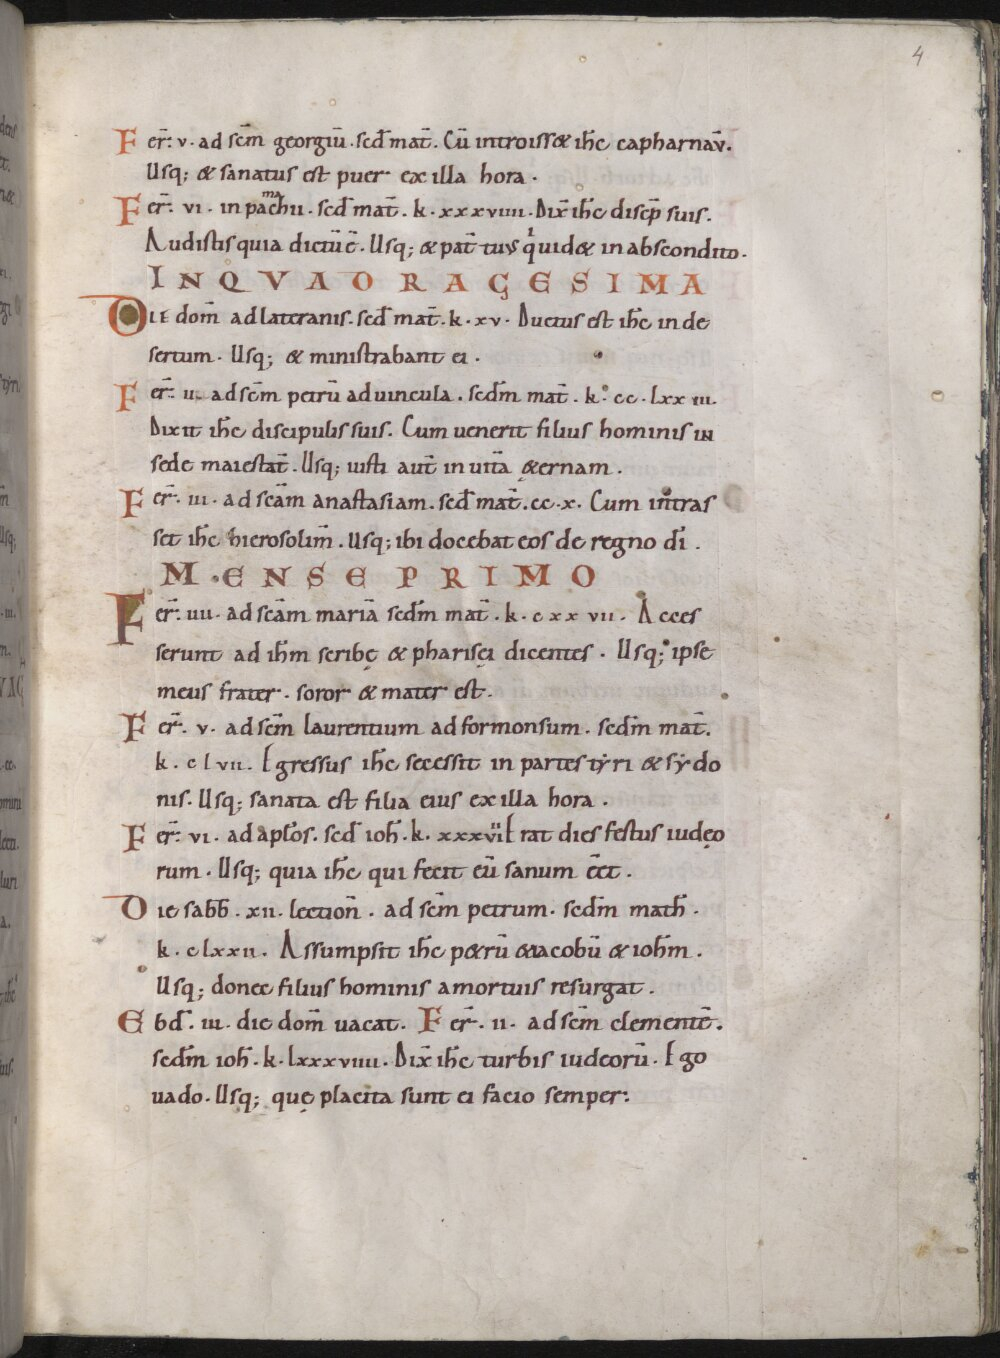 4
Fer̄. v. ad sc̄m georgiū. scd̄ mat̄. Cū introiss& ih̄c capharnaū.
Usq; & sanatus est puer ex illa hora.
Fer̄. vi. in pamachii. scd̄ mat̄. k. xxxviiii. Dix̄ ih̄c discip̄ suis.
Audistis quia dictū ē. Usq; & pat̄ tuus qui uid& in abscondito.
IN QVADRAGESIMA
Die dom̄ ad lateranis. scd̄ mat̄. k. xv. Ductus est ih̄c in de
sertum. Usq; & ministrabant ei.
Fer̄. ii. ad sc̄m petrū ad uincula. scdm̄ mat̄. k. cc. lxxiii.
Dixit ih̄c discipulis suis. Cum uenerit filius hominis in
sede maiestat̄. Usq; iusti aut̄ in uitā &ernam.
Fer̄. iii. ad scām anastasiam. scd̄ mat̄. cc. x. Cum intras
set ih̄c hierosolim̄. Usq; ibi docebat eos de regno dī.
MENSE PRIMO
Fer̄. iiii. ad scām mariā scdm̄ mat̄. k. cxxvii. Acces
serunt ad ih̄m scribę & pharisęi dicentes. Usq; ipse
meus frater. soror & mater est.
Fer̄. v. ad sc̄m laurentium ad formonsum. scdm̄ mat̄.
k. clvii. Egressus ih̄c secessit in partes tyri & sydo
nis. Usq; sanata est filia eius ex illa hora.
Fer̄. vi. ad apl̄os. scd̄ ioh̄. k. xxxvii Erat dies festus iudęo
rum. Usq; quia ih̄c qui fecit eū sanum ēēt.
Die sabb̄. xii. lection̄. ad sc̄m petrum. scdm̄ math̄.
k. clxxii. Assumpsit ih̄c p&rū &iacobū & ioh̄m.
Usq; donec filius hominis a mortuis resurgat.
Ebd̄. iii. die dom̄ uacat. Fer̄. ii. ad sc̄m clementē.
scdm̄ ioh̄. k. lxxxviiii. Dix̄ ih̄c turbis iudeorū. Ego
uado. Usq; quę placita sunt ei facio semper.